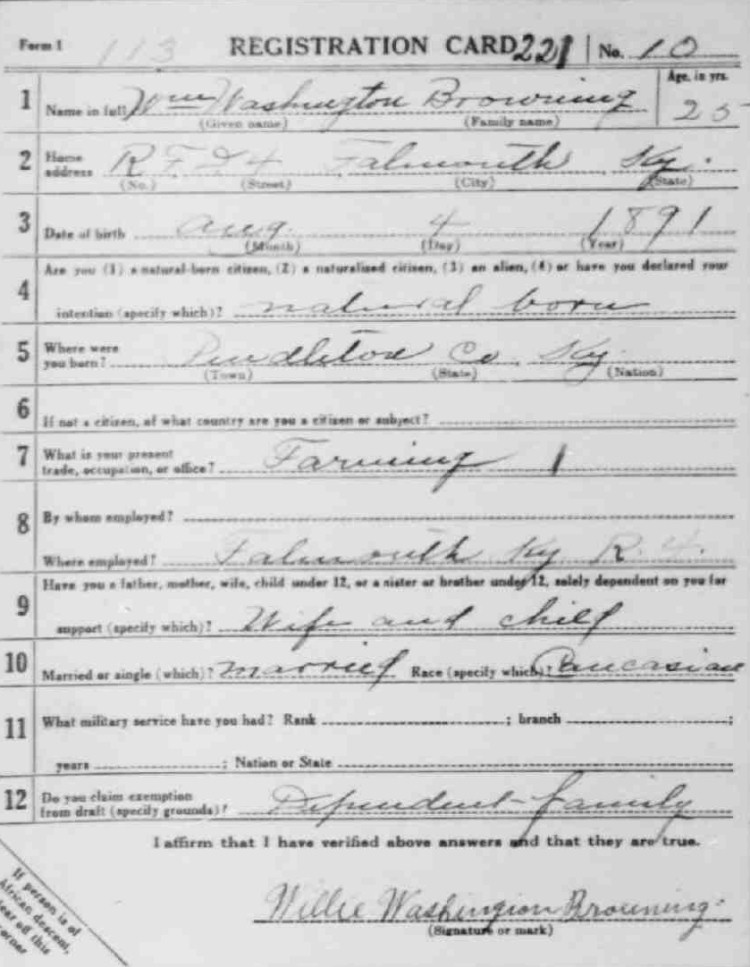 Form 1 113 REGISTRATION CARD 221 No. 10
1 Name in full Wm Washington Browning Age, in yrs. 25
(Given name) (Family name)
2 Home address R F D 4 Falmouth Ky.
(No.) (Street) (City) (State)
3 Date of birth Aug. 4 1891
(Month) (Day) (Year)
4 Are you (1) a natural-born citizen, (2) a naturalized citizen, (3) an alien, (4) or have you declared your
intention (specify which)? natural born
5 Where were you born? Pendleton Co Ky.
(Town) (State) (Nation)
6 If not a citizen, of what country are you a citizen or subject?
7 What is your present trade, occupation, or office? Farming
8 By whom employed?
Where employed? Falmouth Ky R. 4.
9 Have you a father, mother, wife, child under 12, or a sister or brother under 12, solely dependent on you for
support (specify which)? Wife and child
10 Married or single (which)? married Race (specify which)? Caucasian
11 What military service have you had? Rank ; branch ;
years ; Nation or State
12 Do you claim exemption from draft (specify grounds)? Dependent family
I affirm that I have verified above answers and that they are true.
Willie Washington Browning.
(Signature or mark)
If person is of
African descent,
tear off this
corner